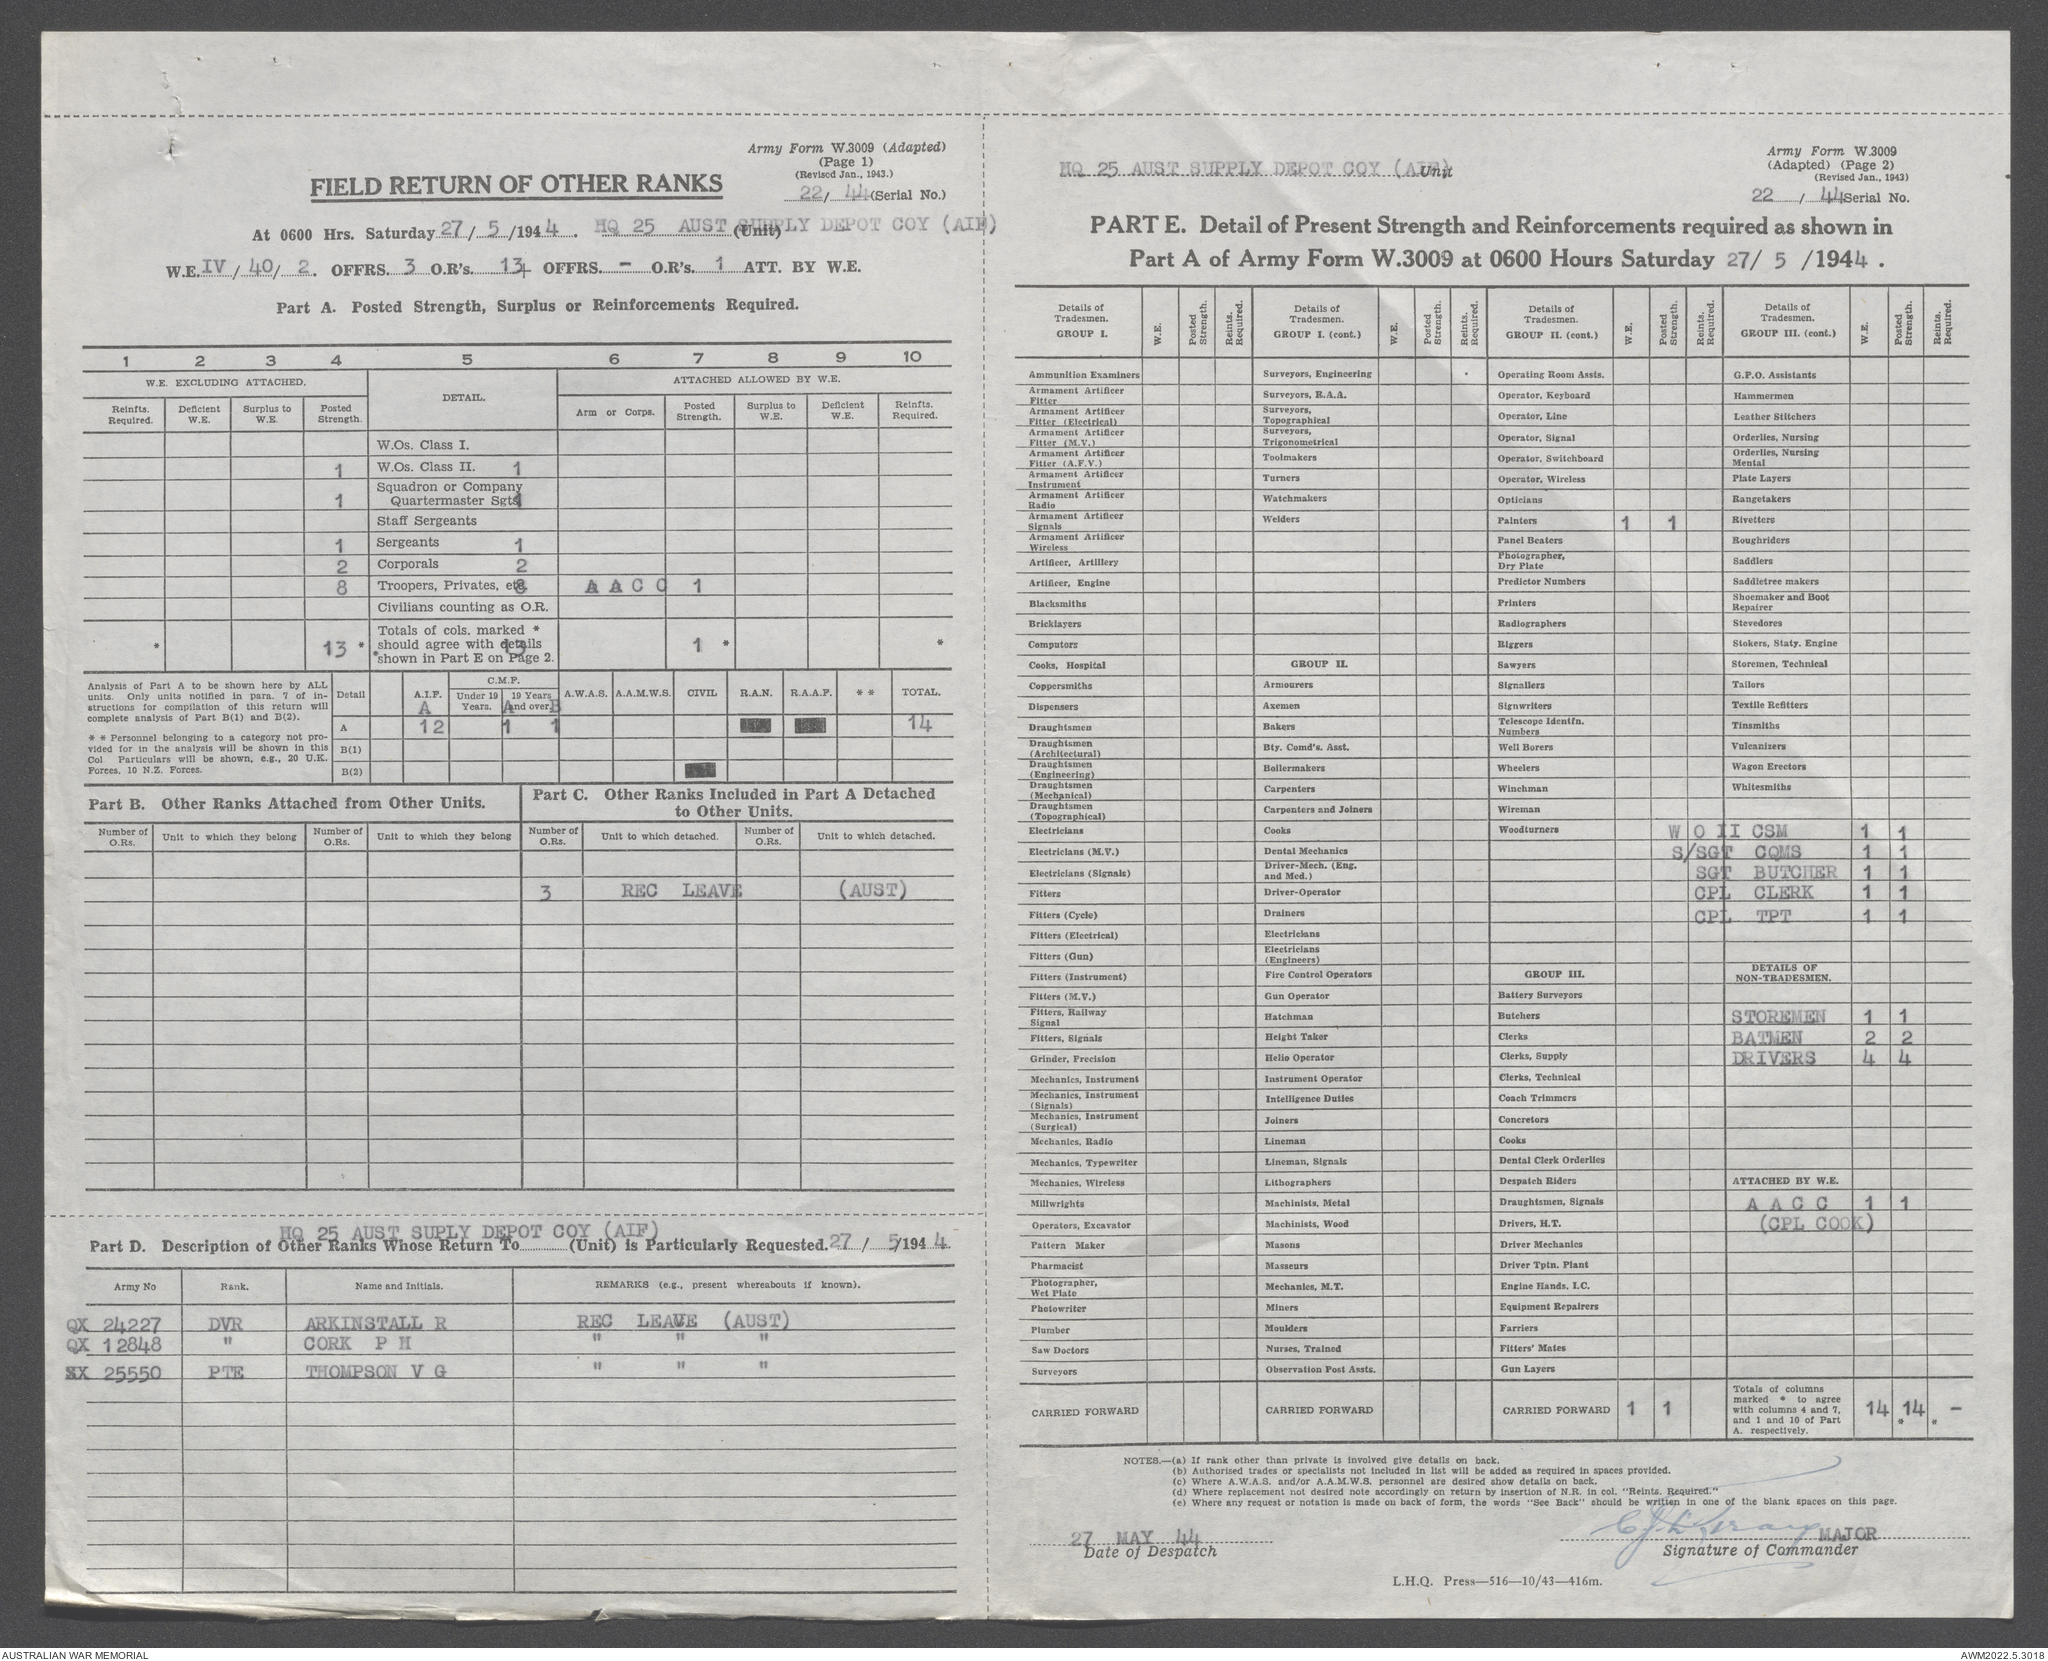 Army Form W.3009 (Adapted)
(Page 1)
(Revised Jan., 1943.)
22/ 44 (Serial No.)
FIELD RETURN OF OTHER RANKS
At 0600 Hrs. Saturday 27/ 5 /1944 . HQ 25 AUST SUPPLY DEPOT COY (AIF) (Unit)
W.E. IV/ 40/ 2. OFFRS. 3 O.R's. 13 OFFRS. - O.R's. 1 ATT. BY W.E.
Part A. Posted Strength, Surplus or Reinforcements Required.
1 2 3 4 5 6 7 8 9 10
W.E. EXCLUDING ATTACHED. DETAIL. ATTACHED ALLOWED BY W.E.
Reinfts. Required. Deficient W.E. Surplus to W.E. Posted Strength. Arm or Corps. Posted Strength. Surplus to W.E. Deficient W.E. Reinfts. Required.
W.Os. Class I.
1 W.Os. Class II. 1
Squadron or Company
1 Quartermaster Sgts. 1
Staff Sergeants
1 Sergeants 1
2 Corporals 2
8 Troopers, Privates, etc. 8 A A C C 1
Civilians counting as O.R.
Totals of cols. marked *
* 13 * should agree with details 13 1 * *
shown in Part E on Page 2.
Analysis of Part A to be shown here by ALL
units. Only units notified in para. 7 of in-
structions for compilation of this return will
complete analysis of Part B(1) and B(2).
* * Personnel belonging to a category not pro-
vided for in the analysis will be shown in this
Col Particulars will be shown, e.g., 20 U.K.
Forces, 10 N.Z. Forces.
C.M.F.
Detail A.I.F. Under 19 Years. 19 Years and over. A.W.A.S. A.A.M.W.S. CIVIL R.A.N. R.A.A.F. * * TOTAL.
A A B
A 12 1 1 14
B(1)
B(2)
Part B. Other Ranks Attached from Other Units.
Number of O.Rs. Unit to which they belong Number of O.Rs. Unit to which they belong
Part C. Other Ranks Included in Part A Detached
to Other Units.
Number of O.Rs. Unit to which detached. Number of O.Rs. Unit to which detached.
3 REC LEAVE (AUST)
HQ 25 AUST SUPLY DEPOT COY (AIF)
Part D. Description of Other Ranks Whose Return To (Unit) is Particularly Requested. 27 / 5/194 4.
Army No Rank. Name and Initials. REMARKS (e.g., present whereabouts if known).
QX 24227 DVR ARKINSTALL R REC LEAVE (AUST)
QX 12848 " CORK P H " " "
SX 25550 PTE THOMPSON V G " " "
HQ 25 AUST SUPPLY DEPOT COY (AIF) Unit
Army Form W.3009
(Adapted) (Page 2)
(Revised Jan., 1943)
22 / 44 Serial No.
PART E. Detail of Present Strength and Reinforcements required as shown in
Part A of Army Form W.3009 at 0600 Hours Saturday 27/ 5 /1944 .
Details of Tradesmen. GROUP I. W.E. Posted Strength. Reints. Required.
Ammunition Examiners
Armament Artificer Fitter
Armament Artificer Fitter (Electrical)
Armament Artificer Fitter (M.V.)
Armament Artificer Fitter (A.F.V.)
Armament Artificer Instrument
Armament Artificer Radio
Armament Artificer Signals
Armament Artificer Wireless
Artificer, Artillery
Artificer, Engine
Blacksmiths
Bricklayers
Computors
Cooks, Hospital
Coppersmiths
Dispensers
Draughtsmen
Draughtsmen (Architectural)
Draughtsmen (Engineering)
Draughtsmen (Mechanical)
Draughtsmen (Topographical)
Electricians
Electricians (M.V.)
Electricians (Signals)
Fitters
Fitters (Cycle)
Fitters (Electrical)
Fitters (Gun)
Fitters (Instrument)
Fitters (M.V.)
Fitters, Railway Signal
Fitters, Signals
Grinder, Precision
Mechanics, Instrument
Mechanics, Instrument (Signals)
Mechanics, Instrument (Surgical)
Mechanics, Radio
Mechanics, Typewriter
Mechanics, Wireless
Millwrights
Operators, Excavator
Pattern Maker
Pharmacist
Photographer, Wet Plate
Photowriter
Plumber
Saw Doctors
Surveyors
CARRIED FORWARD
Details of Tradesmen. GROUP I. (cont.) W.E. Posted Strength. Reints. Required.
Surveyors, Engineering
Surveyors, R.A.A.
Surveyors, Topographical
Surveyors, Trigonometrical
Toolmakers
Turners
Watchmakers
Welders
GROUP II.
Armourers
Axemen
Bakers
Bty. Comd's. Asst.
Boilermakers
Carpenters
Carpenters and Joiners
Cooks
Dental Mechanics
Driver-Mech. (Eng. and Med.)
Driver-Operator
Drainers
Electricians
Electricians (Engineers)
Fire Control Operators
Gun Operator
Hatchman
Height Taker
Helio Operator
Instrument Operator
Intelligence Duties
Joiners
Lineman
Lineman, Signals
Lithographers
Machinists, Metal
Machinists, Wood
Masons
Masseurs
Mechanics, M.T.
Miners
Moulders
Nurses, Trained
Observation Post Assts.
CARRIED FORWARD
Details of Tradesmen. GROUP II. (cont.) W.E. Posted Strength. Reints. Required.
Operating Room Assts.
Operator, Keyboard
Operator, Line
Operator, Signal
Operator, Switchboard
Operator, Wireless
Opticians
Painters 1 1
Panel Beaters
Photographer, Dry Plate
Predictor Numbers
Printers
Radiographers
Riggers
Sawyers
Signallers
Signwriters
Telescope Identfn. Numbers
Well Borers
Wheelers
Winchman
Wireman
Woodturners
GROUP III.
Battery Surveyors
Butchers
Clerks
Clerks, Supply
Clerks, Technical
Coach Trimmers
Concretors
Cooks
Dental Clerk Orderlies
Despatch Riders
Draughtsmen, Signals
Drivers, H.T.
Driver Mechanics
Driver Tptn. Plant
Engine Hands, I.C.
Equipment Repairers
Farriers
Fitters' Mates
Gun Layers
CARRIED FORWARD 1 1
Details of Tradesmen. GROUP III. (cont.) W.E. Posted Strength. Reints. Required.
G.P.O. Assistants
Hammermen
Leather Stitchers
Orderlies, Nursing
Orderlies, Nursing Mental
Plate Layers
Rangetakers
Rivetters
Roughriders
Saddlers
Saddletree makers
Shoemaker and Boot Repairer
Stevedores
Stokers, Staty. Engine
Storemen, Technical
Tailors
Textile Refitters
Tinsmiths
Vulcanizers
Wagon Erectors
Whitesmiths
W O II CSM 1 1
S/SGT CQMS 1 1
SGT BUTCHER 1 1
CPL CLERK 1 1
CPL TPT 1 1
DETAILS OF NON-TRADESMEN.
STOREMEN 1 1
BATMEN 2 2
DRIVERS 4 4
ATTACHED BY W.E.
A A C C 1 1
(CPL COOK)
Totals of columns
marked * to agree
with columns 4 and 7, 14 14 -
and 1 and 10 of Part * *
A. respectively.
NOTES.—(a) If rank other than private is involved give details on back.
(b) Authorised trades or specialists not included in list will be added as required in spaces provided.
(c) Where A.W.A.S. and/or A.A.M.W.S. personnel are desired show details on back.
(d) Where replacement not desired note accordingly on return by insertion of N.R. in col. "Reints. Required."
(e) Where any request or notation is made on back of form, the words "See Back" should be written in one of the blank spaces on this page.
27 MAY 44
Date of Despatch
MAJOR
Signature of Commander
L.H.Q. Press—516—10/43—416m.
AUSTRALIAN WAR MEMORIAL
AWM2022.5.3018